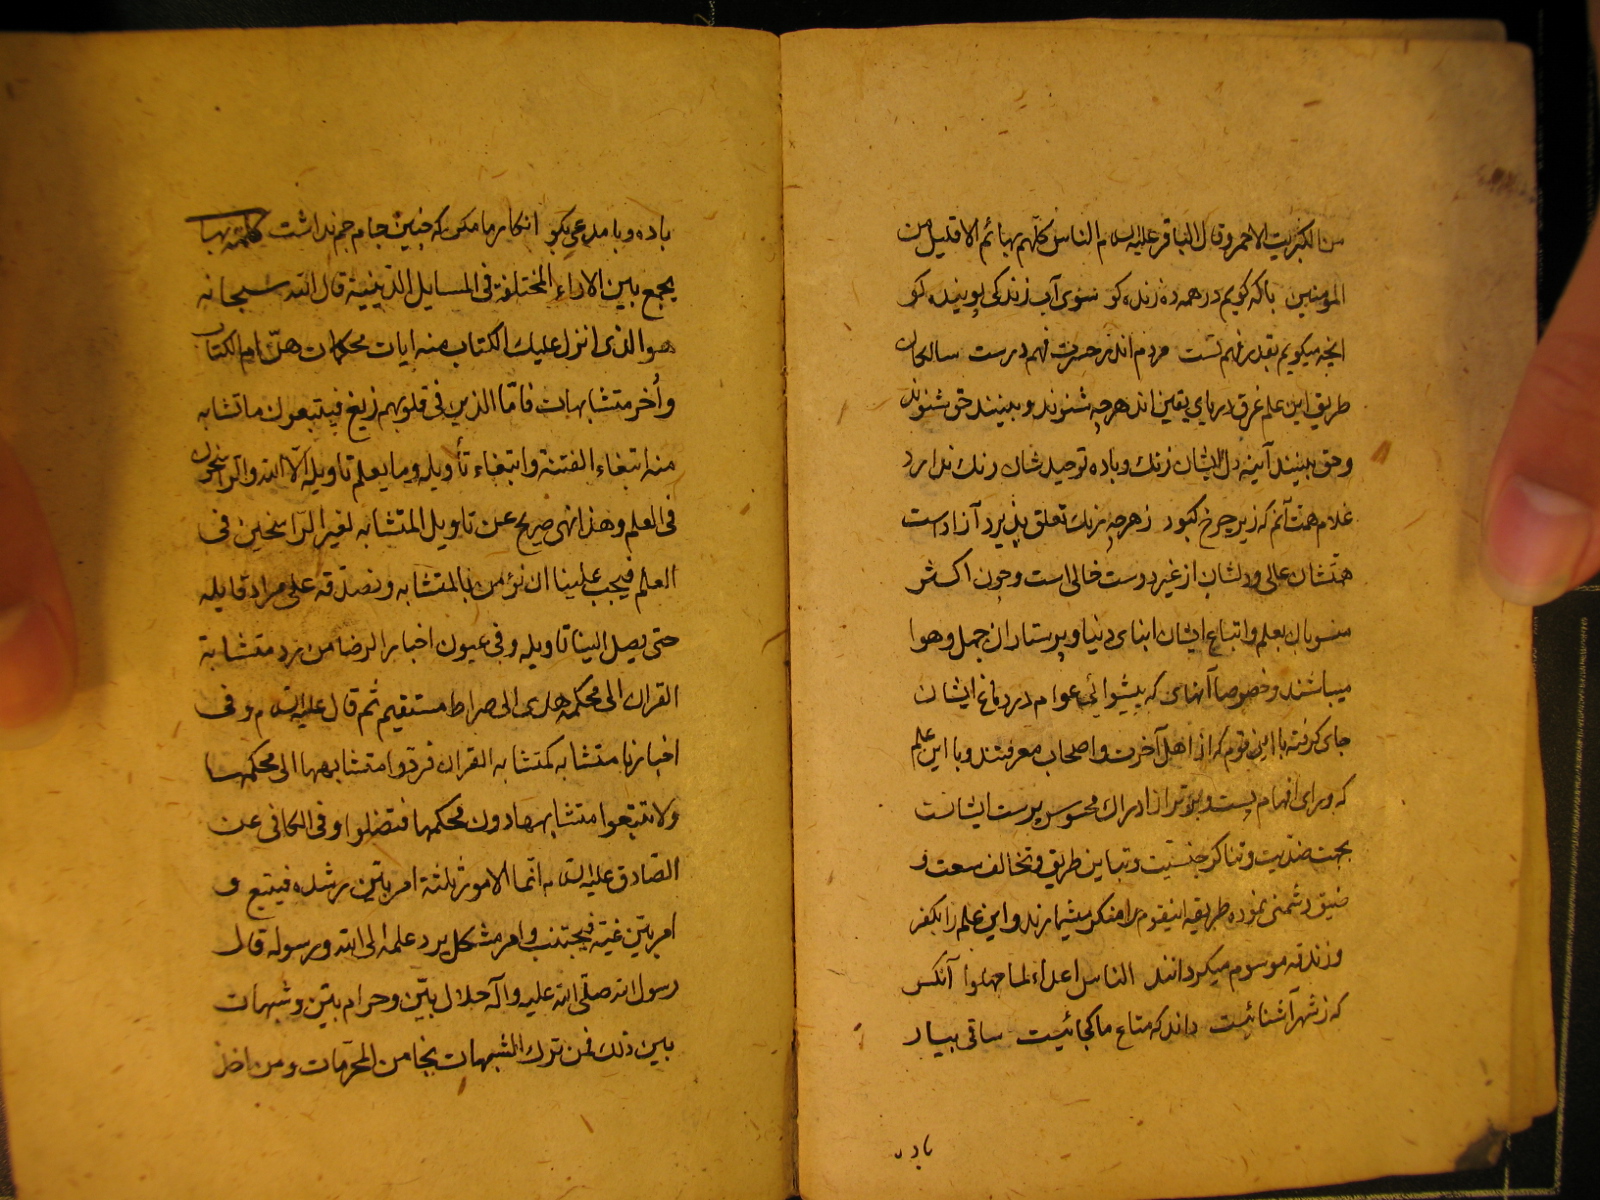 من الکبریت الاحمر وقال الباقر علیه السلام الناس کلهم بهائم الا قلیل من
المومنین با که کویم در همه ده زنده کو سوی آب زندکی پوینده کو
انچه میکویم بقدر فهم تست مردم اندر حسرت فهم درست سالکان
طریق این علم غرق دریای یقین اند هرچه شنوند و بینند حق شنوند
و حق بینند آینه دل ایشان زنک و باده توحید شان رنک ندارد
غلام همت آنم که زیر چرخ کبود زهرچه رنک تعلق پذیرد آزادست
همتشان عالی و دلشان از غیر دوست خالی است و چون اکثر
منسوبان بعلم و اتباع ایشان ابنای دنیا و پرستاران جهل و هوا
میباشند و خصوصا آنهای که پیشوائی عوام در دماغ ایشان
جای کرفته با این قوم که از اهل آخرت و اصحاب معرفتند و با این علم
که ورای افهام پست و برتر از ادراک محسوس پرست ایشانست
بجهت ضدیت و تناکر جنسیت و تباین طریق و تخالف سعت و
ضیق دشمنی نموده طریقه اینقوم را منکر میشمارند و این علم را بکفر
و زندقه موسوم میکردانند الناس اعداء لما جهلوا آنکس
که ز شهر آشنائیست داند که متاع ما کجائیست ساقی بیار
باده
باده و با مدعی بکو انکار ما مکن که چنین جام جم نداشت کلمة بها
یجمع بین الاراء المختلفة فی المسایل الدینیة قال الله سبحانه
هو الذی انزل علیک الکتاب منه ایات محکمات هنّ ام الکتاب
وأُخر متشابهات فامّا الذین فی قلوبهم زیغ فیتبعون ما تشابه
منه ابتغاء الفتنة وابتغاء تأویله وما یعلم تاویله الّا الله والراسخون
فی العلم وهذا نهی صریح عن تاویل المتشابه لغیر الرّاسخین فی
العلم فیجب علینا ان نؤمن بالمتشابه و نصدّقه علی مراد قایله
حتی یصل الینا تاویله وفی عیون اخبار الرضا من رد متشابه
القران الی محکمه هدی الی صراط مستقیم ثم قال علیه السلام و فی
اخبارنا متشابه کمتشابه القران فردّوا متشابهها الی محکمها
ولا تتبعوا متشابهها دون محکمها فتضلوا وفی الکافی عن
الصّادق علیه السلام انّما الامور ثلثة امر بیّن رشده فیتبع و
امر بیّن غیّه فیجتنب وامر مشکل یرد علمه الی الله ورسوله قال
رسول الله صلّی الله علیه وآله حلال بیّن وحرام بیّن وشبهات
بین ذلک فمن ترک الشبهات نجا من المحرّمات ومن اخذ